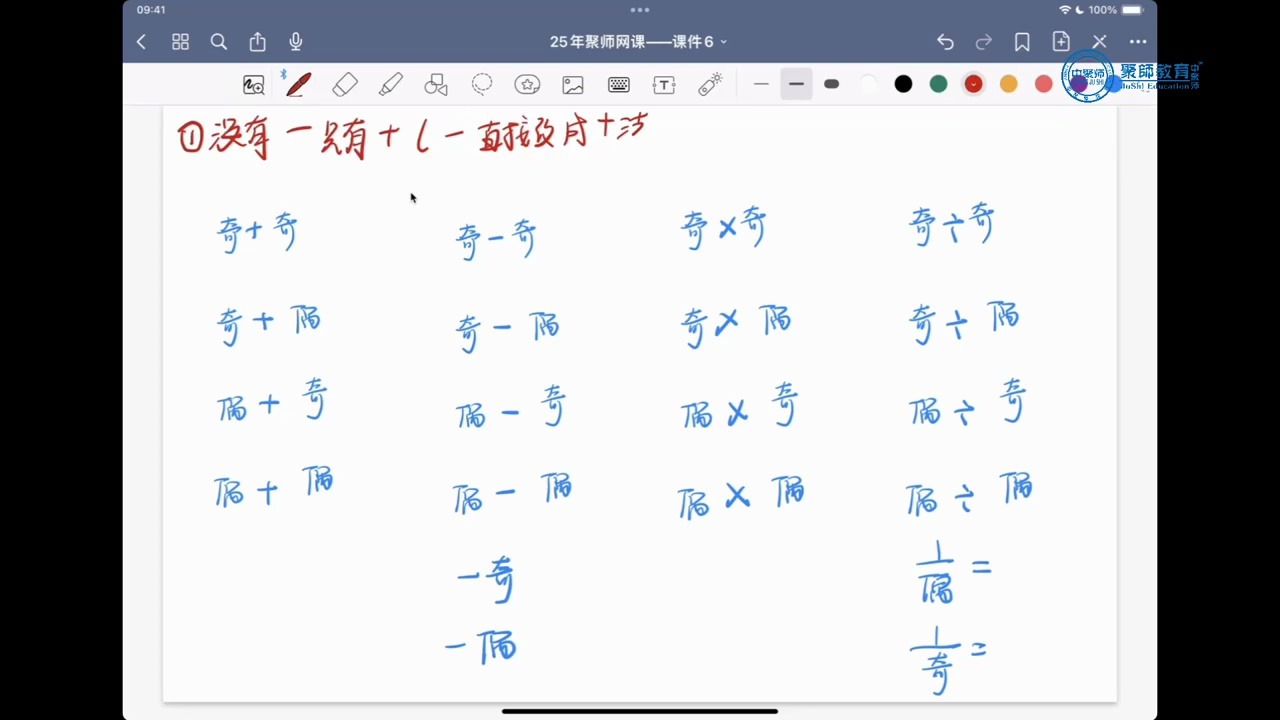 09:41
100%
25年聚师网课——课件6
中聚师
聚師教育
JuShi Education
①没有 一 只有 + ( - 直接改成 + 法
奇+奇 奇-奇 奇×奇 奇÷奇
奇+偶 奇-偶 奇×偶 奇÷偶
偶+奇 偶-奇 偶×奇 偶÷奇
偶+偶 偶-偶 偶×偶 偶÷偶
-奇 1/偶 =
-偶 1/奇 =